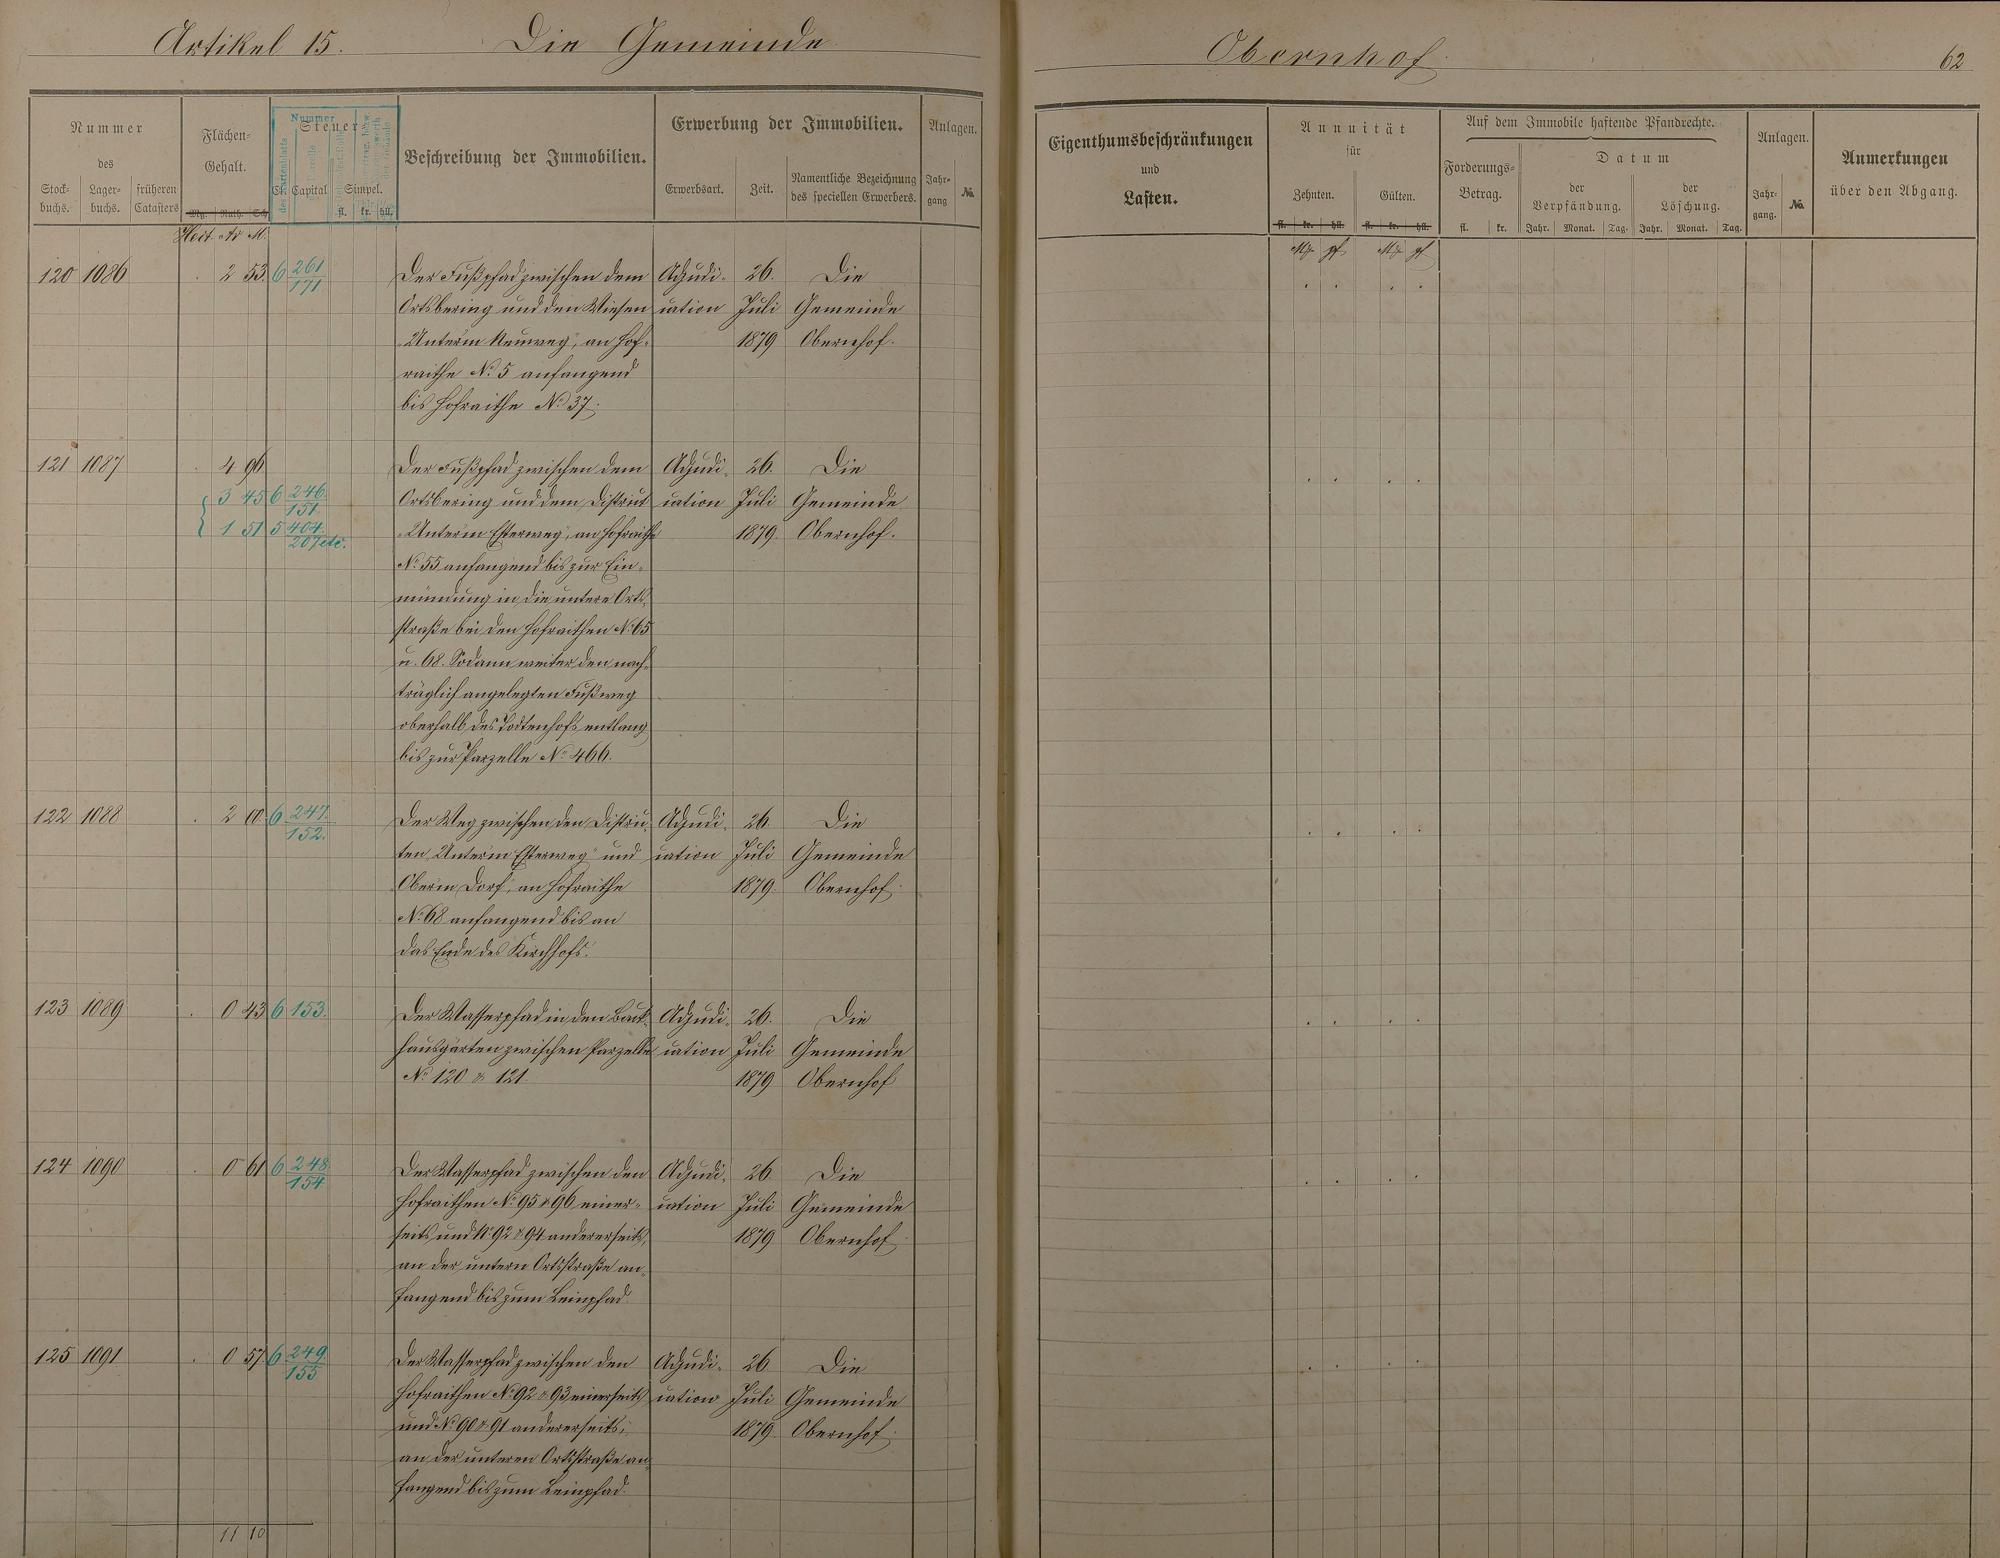 Artikel 15. Die Gemeinde Obernhof. 62
Nummer
des
Stock-
buchs.
Lager-
buchs.
früheren
Catasters
Flächen-
Gehalt.
Mg. Ruth. Sch.
Hect. Ar M.
Steuer
Cl. Capital Simpel.
fl. kr. hll.
Nummer
des Kartenblatts
Beschreibung der Immobilien.
Erwerbung der Immobilien.
Erwerbsart. Zeit. Namentliche Bezeichnung
des speciellen Erwerbers.
Anlagen.
Jahr-
gang
No.
Eigenthumsbeschränkungen
und
Lasten.
Annuität
für
Zehnten. Gülten.
fl. kr. hll. fl. kr. hll.
Mk pf. Mk pf
Auf dem Immobile haftende Pfandrechte.
Forderungs-
Betrag.
fl. kr.
Datum
der
Verpfändung.
der
Löschung.
Jahr. Monat. Tag. Jahr. Monat. Tag.
Anlagen.
Jahr-
gang.
No.
Anmerkungen
über den Abgang.
120 1086 . 2 53. 6 261/171 Der Fußpfad zwischen dem Adjudi- 26. Die
Ortsbering und den Wiesen cation Juli Gemeinde
„Unterm Neuweg", an Hof- 1879 Obernhof.
raithe No. 5 anfangend
bis Hofraithe No. 37.
121 1087 . 4 96 Der Fußpfad zwischen dem Adjudi- 26. Die
3 45 6 246./151. Ortsbering und dem District cation Juli Gemeinde
1 51 5 404./207 etc. „Unterm Esterweg", an Hofraithe 1879. Obernhof.
No. 55 anfangend bis zur Ein-
mündung in die untere Orts-
straße bei den Hofraithen No. 65
u. 68. Sodann weiter den nach-
träglich angelegten Fußweg
oberhalb des Todtenhofs entlang
bis zur Parzelle No. 466.
122 1088 . 2 00 6 247./152. Der Weg zwischen den Distric- Adjudi- 26. Die
ten „Unterm Esterweg" und cation Juli Gemeinde
Oberm Dorf, an Hofraithe 1879. Obernhof.
No. 68 anfangend bis an
das Ende des Kirchhofs.
123 1089 . 0 43 6 153. Der Wasserpfad in den Back- Adjudi- 26. Die
hausgärten zwischen Parzelle cation Juli Gemeinde
No. 120 & 121. 1879 Obernhof
124 1090 . 0 61 6 248/154 Der Wasserpfad zwischen den Adjudi- 26. Die
Hofraithen No. 95 & 96 einer- cation Juli Gemeinde
seits und No. 92 & 94 andererseits, 1879 Obernhof.
an der untern Ortsstraße an-
fangend bis zum Leinpfad.
125 1091 . 0 57. 6 249./155 Der Wasserpfad zwischen den Adjudi- 26 Die
Hofraithen No. 92 & 93 einerseits cation Juli Gemeinde
und No. 90 & 91 andererseits, 1879. Obernhof.
an der unteren Ortsstraße an-
fangend bis zum Leinpfad.
11 10